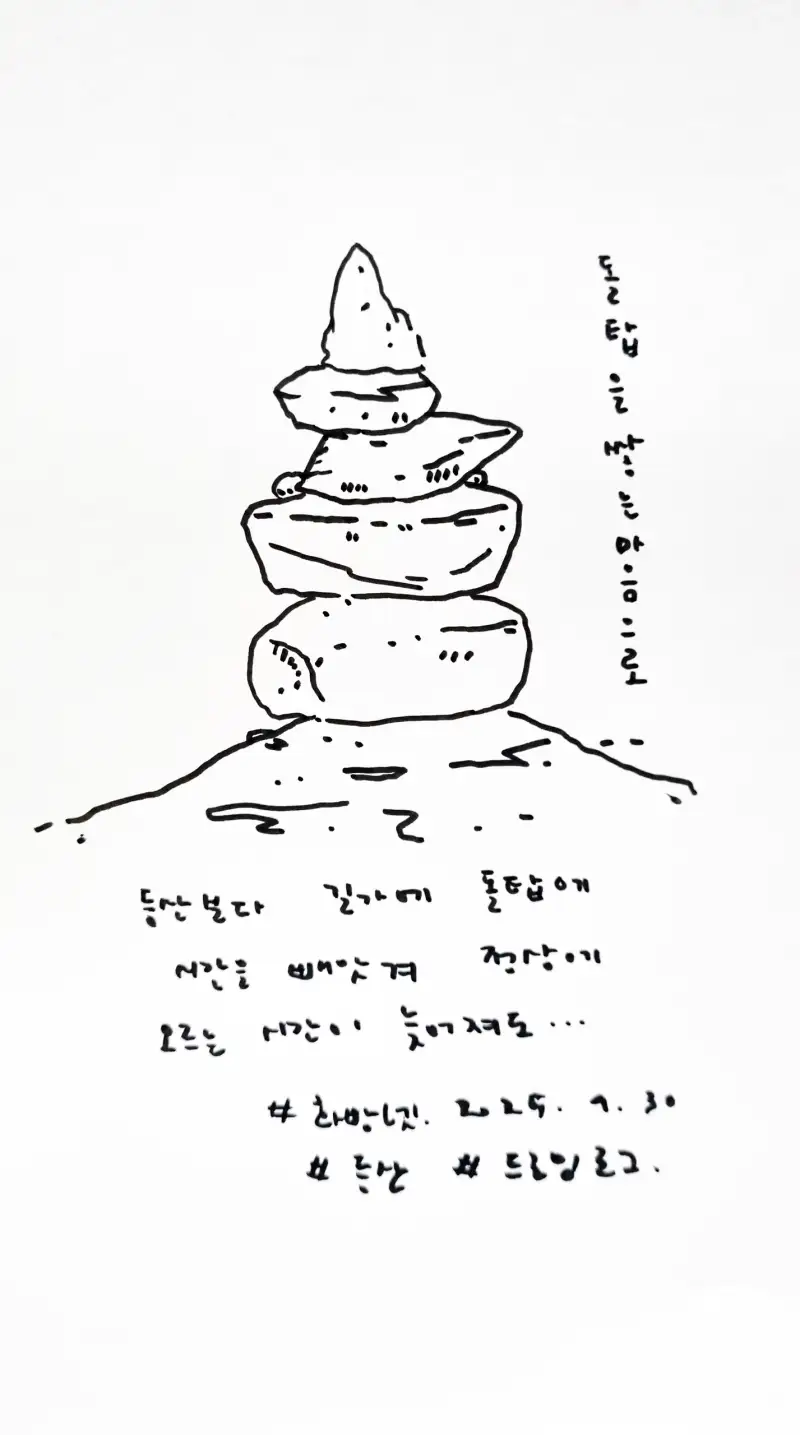 돌탑을 쌓는 마음으로
등산보다 길가에 돌탑에
시간을 빼앗겨 정상에
오르는 시간이 늦어져도...
2025. 9. 30
#등산 #드로잉로그.